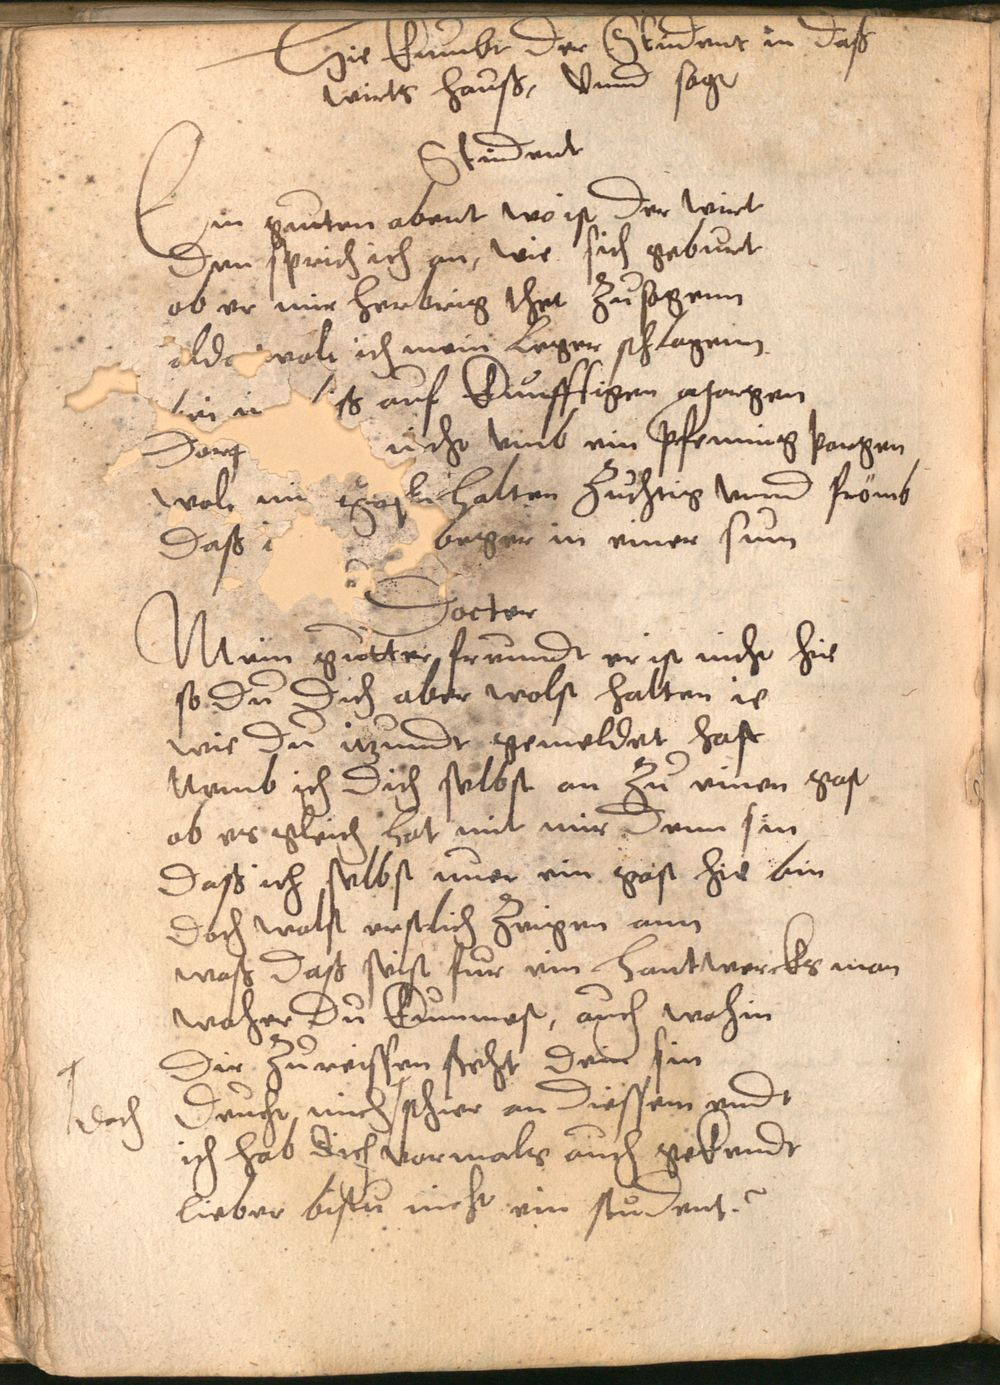 Hie kumbt der Student in daß
wirts hauß, Vnnd sagt
Student
Ein gautten abent wo ist der wirt
Den sprich ich an, wie sich geburt
ob er mir herbrig thet Zusagenn
alda wolt ich mein Leger schlagenn
auf Kunfftigen morgen
Dorf nicht vmb ein Pfenning porgen
wolt halten Zuchtig vnnd fromb
Daß beger in einer sum
Doctor
Mein gutter freundt er ist nicht hie
so Du Dich aber wolst halten ie
wie Du itzundt gemeldet hast
Nemb ich Dich selbst an Zu einen gast
ob es gleich hat mit mir Denn sin
Daß ich selbst nuer ein gast hie bin
Doch wolst erstlich Zeigen ann
waß Daß seist fur ein Hantwercks man
woher Du Kummest, auch wohin
Dir Zureissen steht Dein sin
doch Deucht mich schier an Diessem endt
ich hab Dich vormals auch gekendt
lieber bistu nicht ein student?